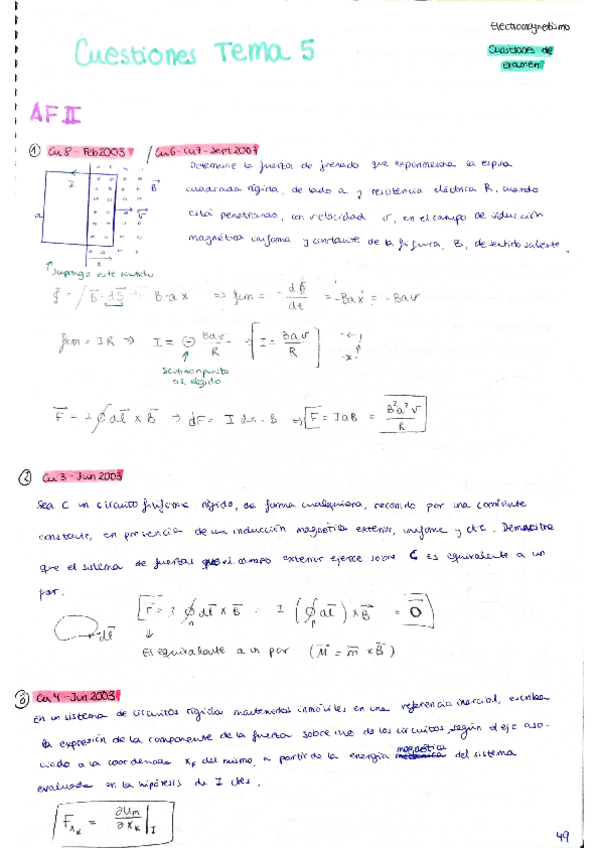 Electromagnetismo
Cuestiones de
examen
Cuestiones Tema 5
AF II
① Cu 8 - Feb 2003 / Cu6 - Cu7 - Sept 2007
Determine la fuerza de frenado que experimenta la espira
cuadrada rígida, de lado a y resistencia eléctrica R, cuando
está penetrando, con velocidad v, en el campo de inducción
magnética uniforme y constante de la figura, B, de sentido saliente.
I
B
a
v
x
Supongo este sentido
Φ = ∫ B · dS = B·a x => fem = - dΦ/dt = -Ba ẋ = -Bav
fem = IR => I = ⊖ Bav/R → [I = Bav/R]
Sentido opuesto
al elegido
F = I ∮ dl × B → dF = I dx · B => F = IaB = B²a²v/R
② Cu 3 - Jun 2003
Sea C un circuito filiforme rígido, de forma cualquiera, recorrido por una corriente
constante, en presencia de una inducción magnética exterior, uniforme y cte. Demuestre
que el sistema de fuerzas que el campo exterior ejerce sobre C es equivalente a un
par.
F = I ∮ dl × B = I (∮ dl) × B = 0
dl
Es equivalente a un par (M = m × B)
③ Cu 4 - Jun 2003
En un sistema de circuitos rígidos mantenidos inmóviles en una referencia inercial, escriba
la expresión de la componente de la fuerza sobre uno de los circuitos, según el eje aso-
ciado a la coordenada xk del mismo, a partir de la energía magnética del sistema
evaluada en la hipótesis de I ctes.
F_xk = ∂Um/∂xk |I
49